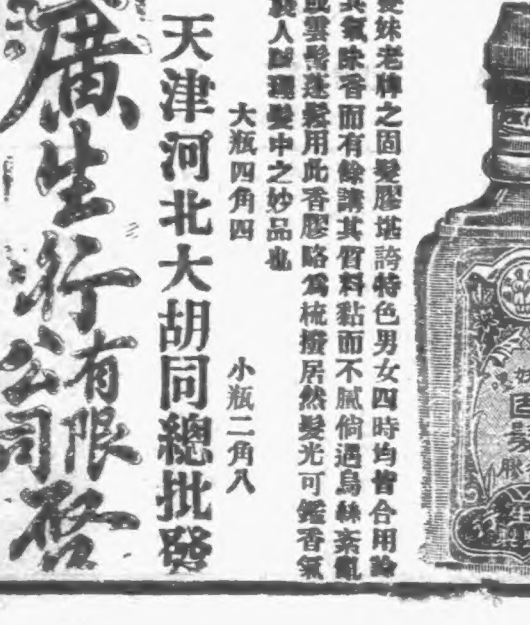 妹老牌之固髮膠堪誇特色男女四時均皆合用論
其氣味香而有餘講其質料黏而不膩倘遇烏絲紊亂
或雲鬢蓬鬆用此香膠略爲梳攏居然髮光可鑑香氣
人誠理髮中之妙品也
大瓶四角四
小瓶二角八
天津河北大胡同總批發
廣生行有限公司啓
固髮